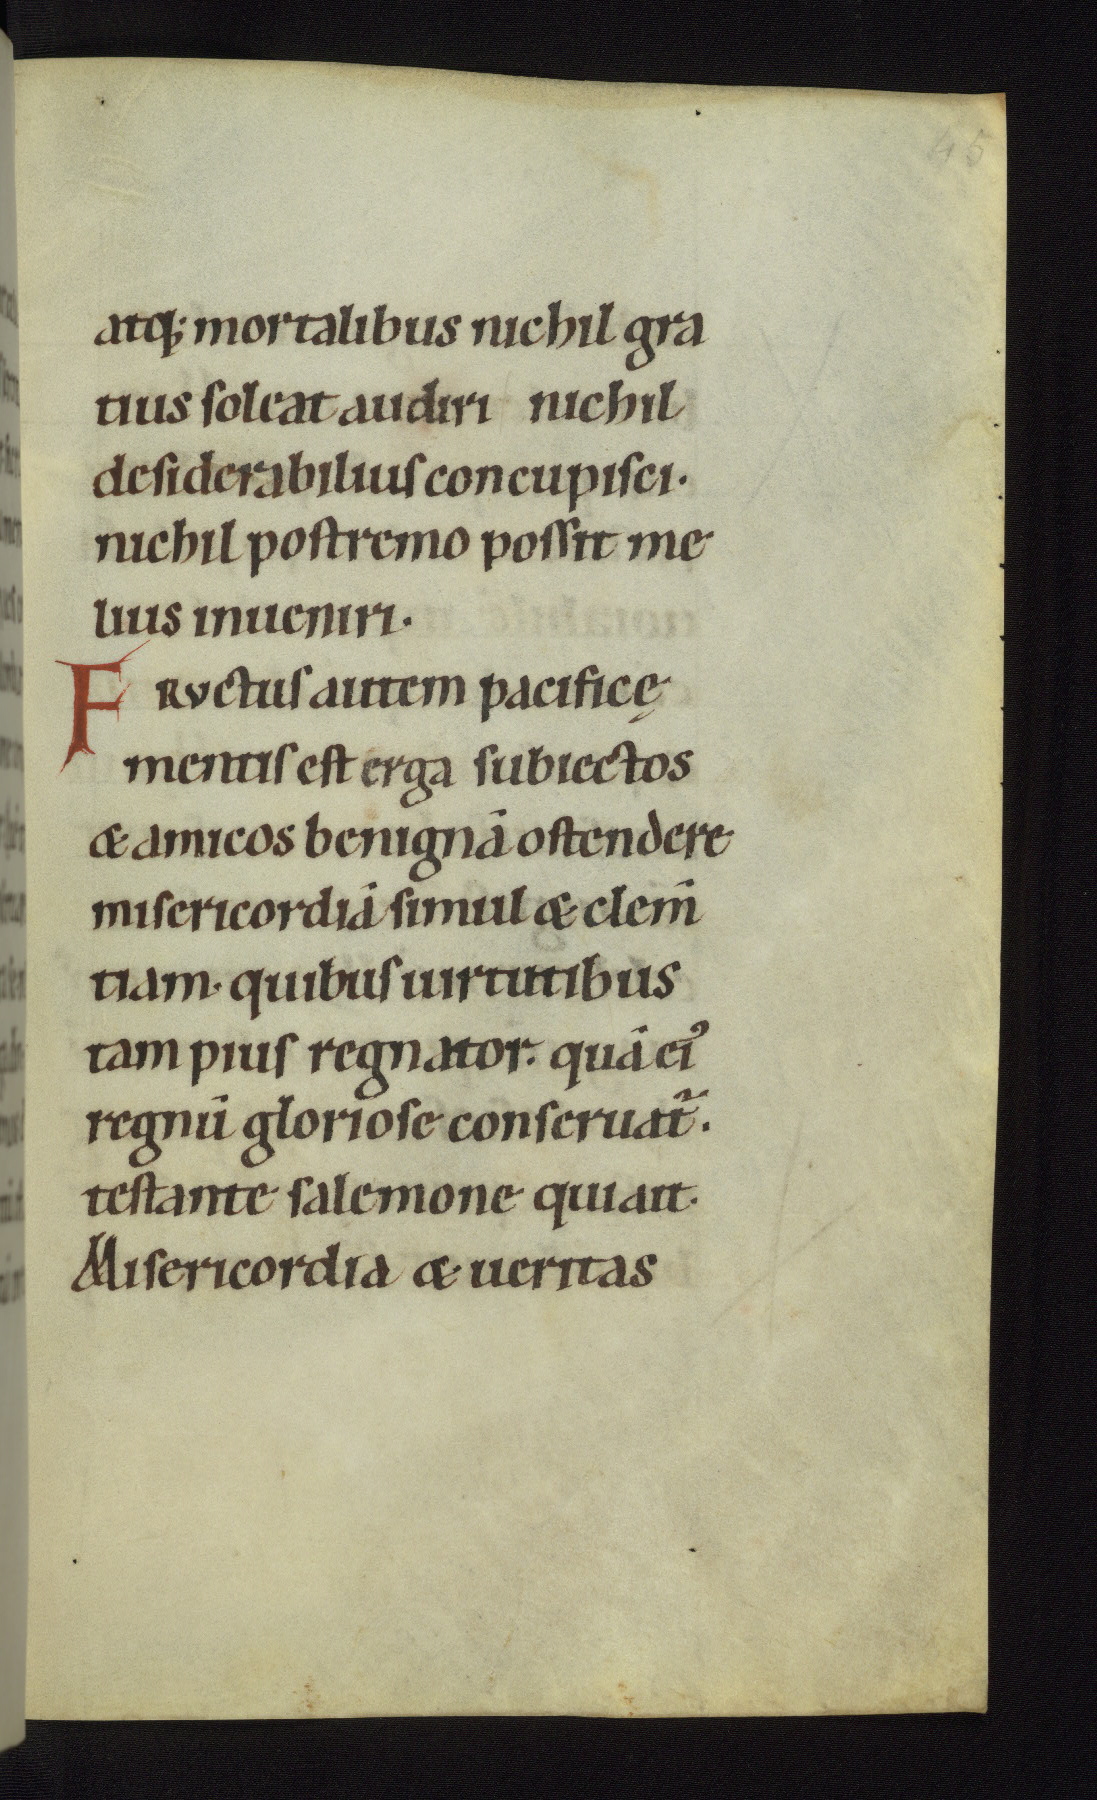 45
atq; mortalibus nichil gra
tius soleat audiri nichil
desiderabilius concupisci·
nichil postremo possit me
lius inueniri·
FRVctus autem pacificę
mentis est erga subiectos
& amicos benignā ostendere
misericordiā simul & clem̄
tiam· quibus uirtutibus
tam pius regnator· quā ei᾽
regnū gloriose conseruat᷑·
testante salemone qui ait·
Misericordia & ueritas